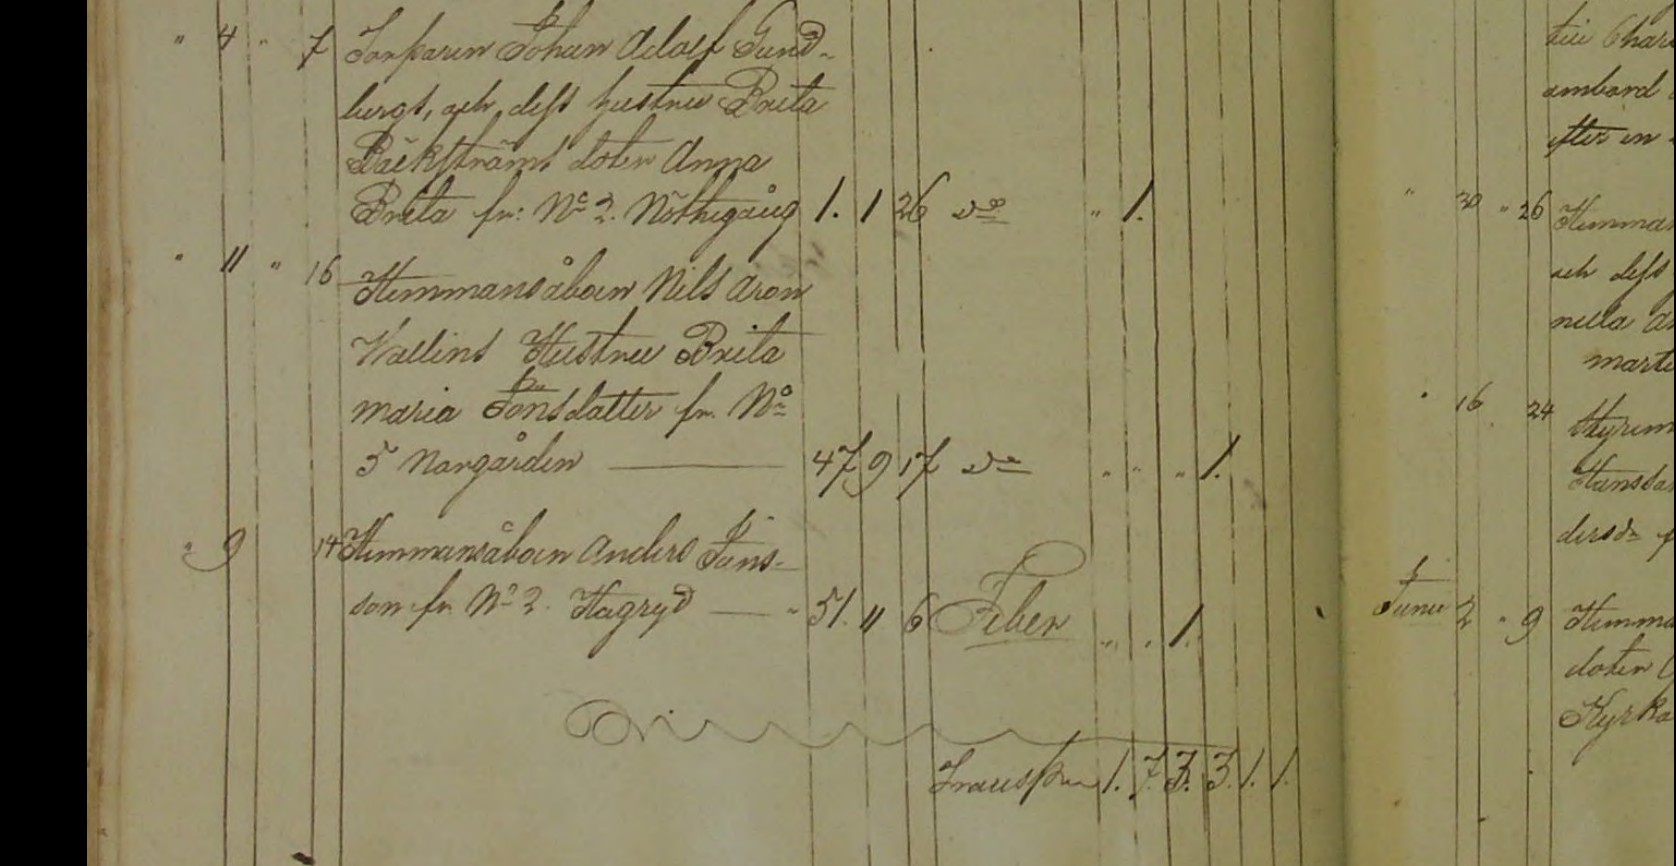 " 4 " 7 Torparen Johan Adolf Sund-
bergs, och dess hustru Brita
Bäckströms doter Anna
Brita fr: No 2. Nöthegång 1. 1 26 do " 1.
" 11 " 16 Hemmansåboen Nils Aron
Wallins Hustru Brita
maria Jönsdatter fr. No
5 Norgården 47 9 17 do " " " 1.
" 9 14 Hemmansåboen Anders Jöns-
son fr No 2. Hagryd " 51. 11 6 Feber " " 1.
Transp 1. 7. 3. 3. 1. 1.
till
ombord
efter en
" 30 " 26 Hemman
och dess
nilla
marti
" 16 24 Styrem
Hansdo
dersdr
Junii 2 " 9 Hemma
doter
Kyrko